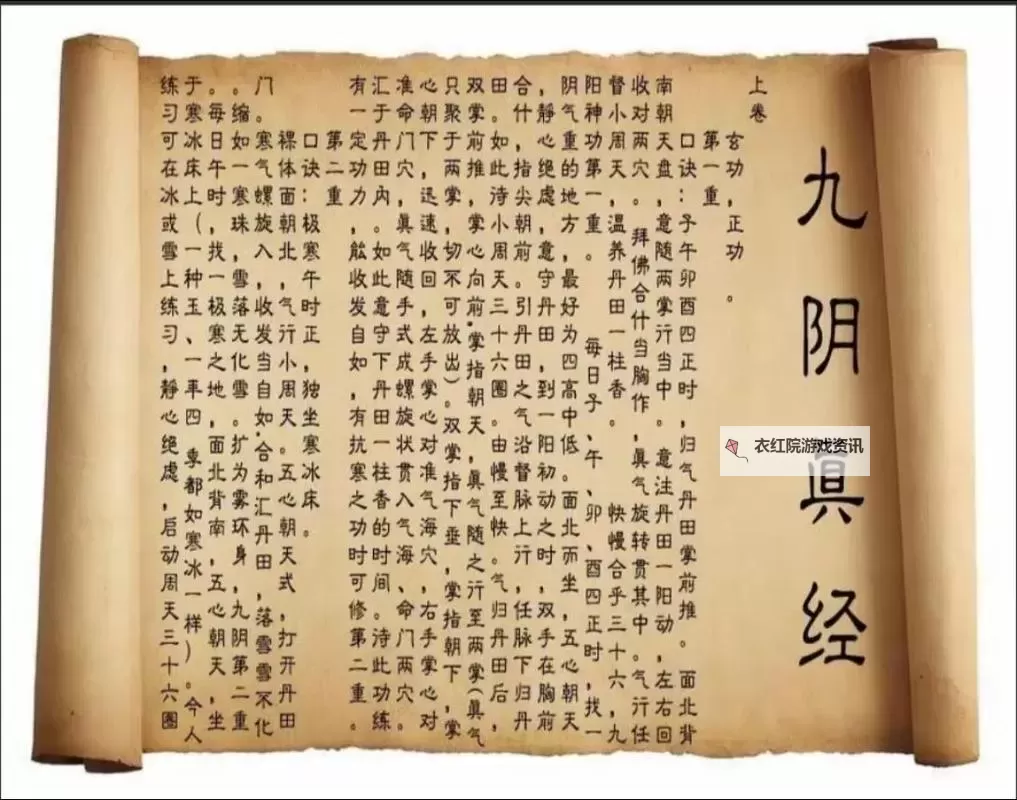 九阴眞经
衣红院游戏资讯
上卷
玄功，正功。
第一重
口诀：子午卯酉四正时，归气丹田掌前推。面北背
南朝天盘，意随两掌行当中。意注丹田一阳动，左右回
收对两穴。拜佛合什当胸作，眞气旋转贯其中。气行任
督小周天，温养丹田一柱香。快慢合乎三十六，九
阳神功第一重。每日子、午、卯、酉四正时，找一
阴气重的地方，最好为四高中低。面北而坐，五心朝天
，静心绝虑，意守丹田，到一阳初动之时，双手在胸前
合什，指尖朝前。引丹田之气沿督脉上行，任脉下归丹
田。如此待小周天三十六圈。由慢至快。气归丹田后，
双掌前推，掌心向前，掌指朝天，眞气随之行至两掌(眞气
只聚于两掌，切不可放出)。双掌指下垂，掌指朝下，掌
心朝下，迅速收回，左手掌心对准气海穴，右手掌心对
准命门穴，眞气随手式成螺旋状贯入气海、命门两穴。
汇于丹田内。如此意守下丹田一柱香的时间。待此功练
有一定功力，能收发自如，有抗寒之功时可修第二重。
第二重
口诀：极寒午时正，独坐寒冰床。
裸体面朝北，气行小周天。五心朝天式，打开丹田
门。寒气螺旋入，收发当自如，合和汇丹田，落雪雪不化
。缩如一寒珠，雪落无化雪。扩为雾环身，九阴第二重
。每日午时，找一极寒之地，面北背南，五心朝天，坐
于寒冰床上(一种玉、一年四季都如寒冰一样)。今人
练习可在冰或雪上练习，静心绝虑，启动周天三十六圈